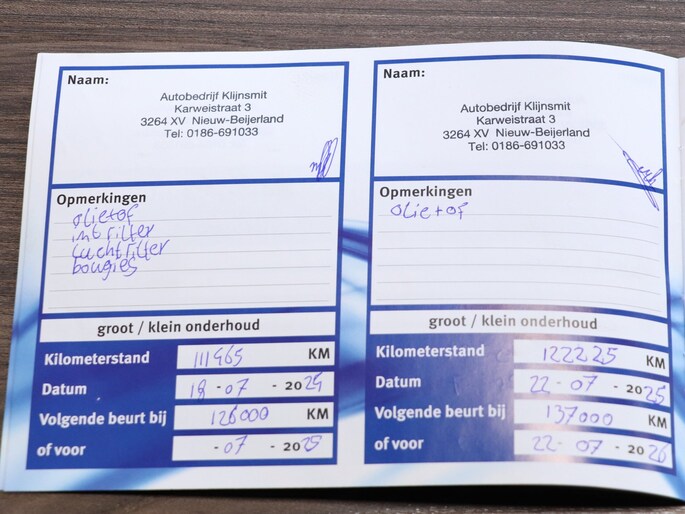 Naam:
Autobedrijf Klijnsmit
Karweistraat 3
3264 XV Nieuw-Beijerland
Tel: 0186-691033
Opmerkingen
olie+of
int filter
luchtfilter
bougies
groot / klein onderhoud
Kilometerstand 111965 KM
Datum 18 -07 - 2024
Volgende beurt bij 126000 KM
of voor - 07 - 2025
Naam:
Autobedrijf Klijnsmit
Karweistraat 3
3264 XV Nieuw-Beijerland
Tel: 0186-691033
Opmerkingen
olie+of
groot / klein onderhoud
Kilometerstand 122225 KM
Datum 22-07 - 2025
Volgende beurt bij 137000 KM
of voor 22- 07 - 2026